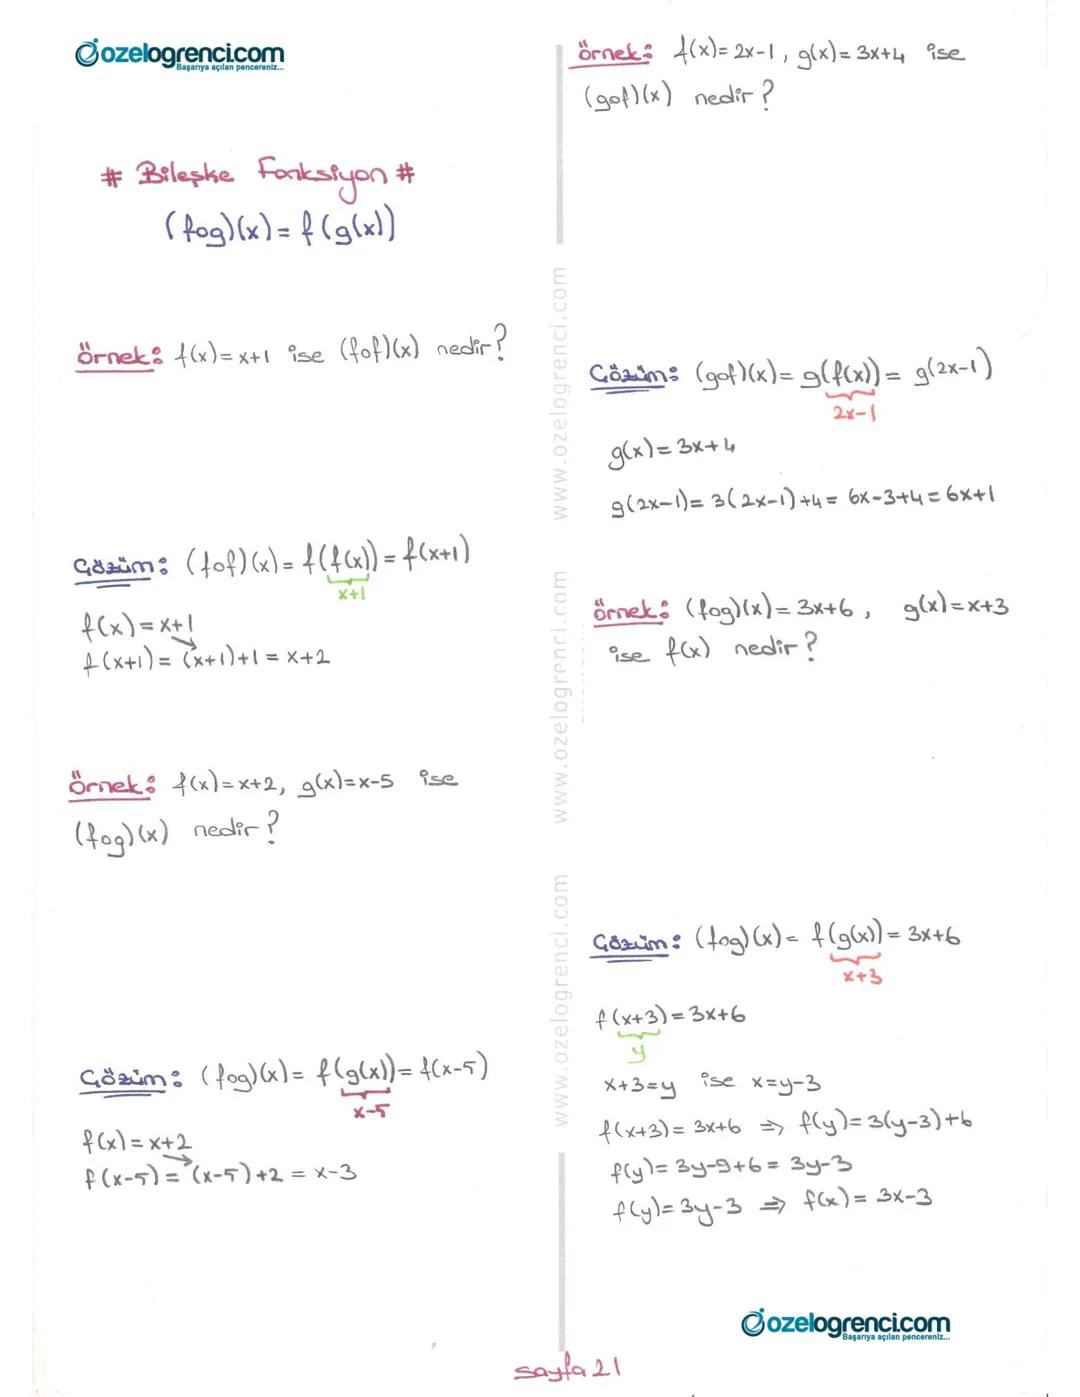 ozelogrenci.com
Başarıya açılan pencereniz...
# Bileşke Fonksiyon #
(fog)(x) = f(g(x))
Örnek: f(x)=x+1 ise (fof)(x) nedir?
Çözüm: (fof)(x) = f(f(x)) = f(x+1)
x+1
f(x) = x+1
f(x+1) = (x+1)+1 = x+2
Örnek: f(x)=x+2, g(x)=x-5 ise
(fog)(x) nedir?
Çözüm: (fog)(x) = f(g(x)) = f(x-5)
x-5
f(x) = x+2
f(x-5) = (x-5)+2 = x-3
www.ozelogrenci.com
www.ozelogrenci.com
www.ozelogrenci.com
Örnek: f(x)=2x-1, g(x)=3x+4 ise
(gof)(x) nedir?
Çözüm: (gof)(x) = g(f(x)) = g(2x-1)
2x-1
g(x) = 3x+4
g(2x-1) = 3(2x-1)+4 = 6x-3+4 = 6x+1
Örnek: (fog)(x) = 3x+6, g(x)=x+3
ise f(x) nedir?
Çözüm: (fog)(x) = f(g(x)) = 3x+6
x+3
f(x+3) = 3x+6
y
x+3=y ise x=y-3
f(x+3) = 3x+6 ⇒ f(y) = 3(y-3)+6
f(y) = 3y-9+6 = 3y-3
f(y) = 3y-3 ⇒ f(x) = 3x-3
ozelogrenci.com
Başarıya açılan pencereniz...
sayfa 21